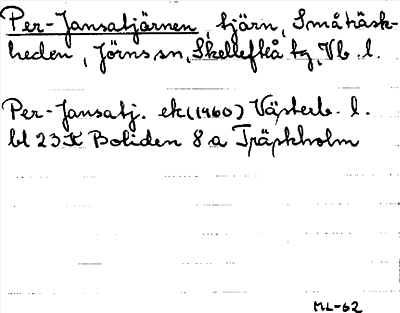 Per-Jansatjärnen, tjärn, Småträsk-
heden, Jörns sn, Skellefteå tg, Vb. l.
Per-Jansatj. ek (1960) Västerb. l.
bl 23 K Boliden 8 a Träskholm
ML-62